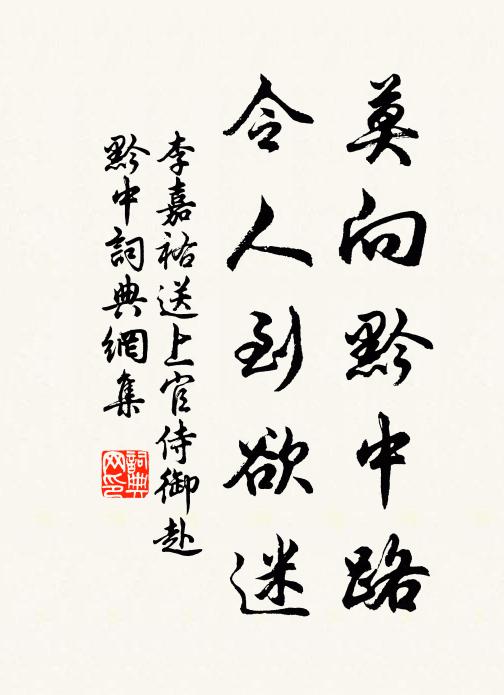 莫向黔中路
令人到欲迷
李嘉祐送上官侍御赴
黔中詞典網集
詞典网印